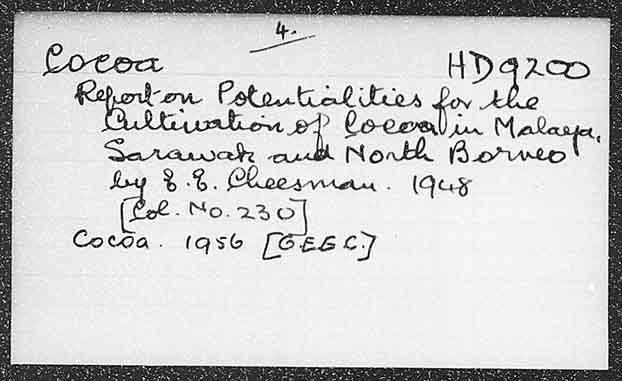 4.
Cocoa HD9200
Report on Potentialities for the
Cultivation of Cocoa in Malaya,
Sarawak and North Borneo
by E. E. Cheesman. 1948
[Col. No. 230]
Cocoa. 1956 [O.E.E.C.]